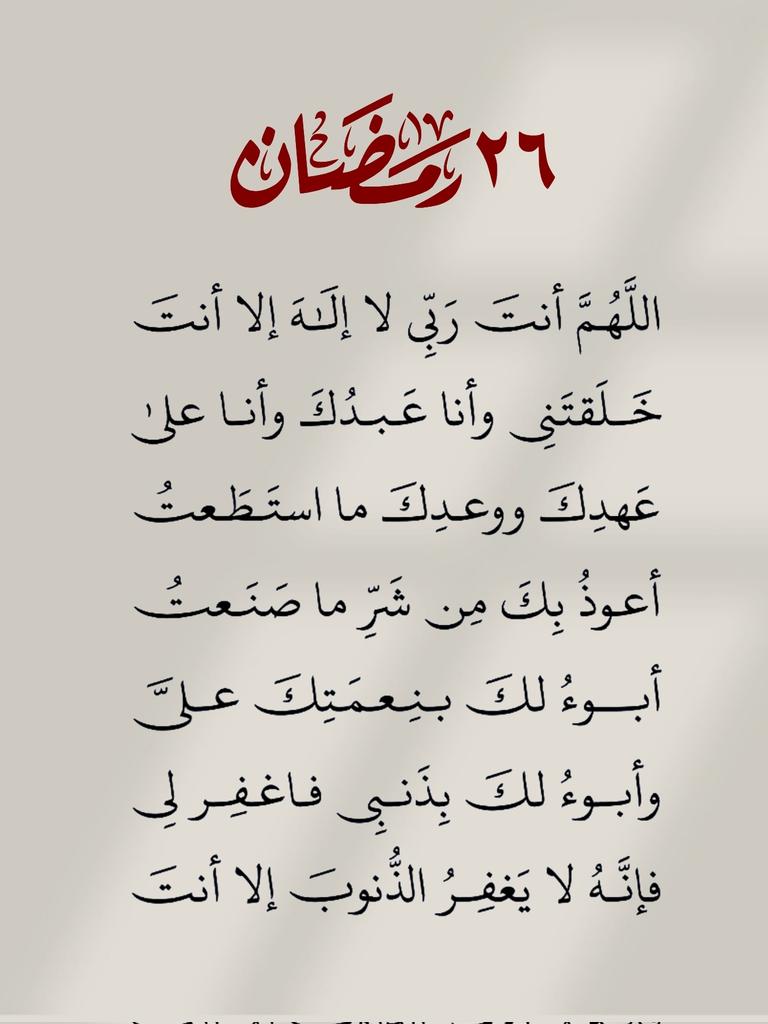 ٢٦ رمضان
اللَّهُمَّ أنتَ رَبِّي لا إلَٰهَ إلا أنتَ
خَلَقتَنِي وأنا عَبدُكَ وأنا علىٰ
عَهدِكَ ووعدِكَ ما استَطَعتُ
أعوذُ بِكَ مِن شَرِّ ما صَنَعتُ
أبوءُ لكَ بنِعمَتِكَ عليَّ
وأبوءُ لكَ بِذَنبِي فاغفِر لِي
فإنَّهُ لا يَغفِرُ الذُّنوبَ إلا أنتَ